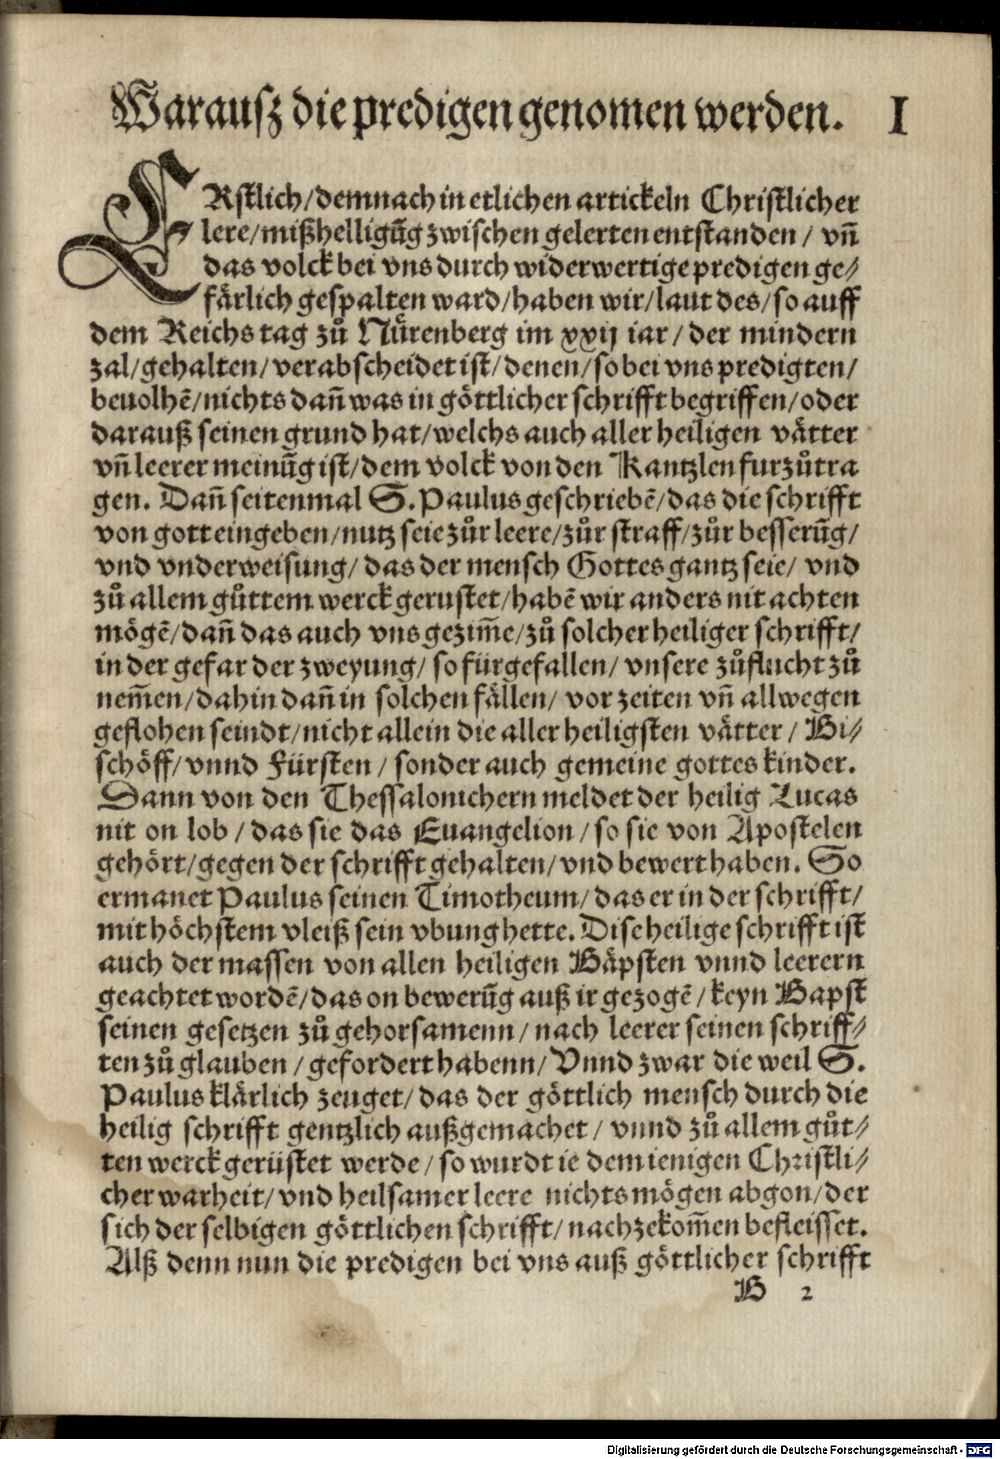 Warausz die predigen genomen werden. I
ERstlich/demnach in etlichen artickeln Christlicher
lere/mißhelligūg zwischen gelerten entstanden/ vñ
das volck bei vns durch widerwertige predigen ge⸗
färlich gespalten ward/haben wir/laut des/so auff
dem Reichs tag zů Nůrenberg im xxij iar/der mindern
zal/gehalten/verabscheidet ist/denen/so bei vns predigten/
beuolhẽ/nichts dañ was in göttlicher schrifft begriffen/oder
darauß seinen grund hat/welchs auch aller heiligen vätter
vñ leerer meinūg ist/dem volck von den Kantzlen furzůtra
gen. Dañ seitenmal S. Paulus geschriebẽ/das die schrifft
von gott eingeben/nutz seie zůr leere/zůr straff/zůr besserūg/
vnd vnderweisung/das der mensch Gottes gantz seie/ vnd
zů allem gůttem werck gerustet/habẽ wir anders nit achten
mögẽ/dañ das auch vns gezim̃e/zů solcher heiliger schrifft/
in der gefar der zweyung/so fürgefallen/ vnsere zůflucht zů
nem̃en/dahin dañ in solchen fällen/ vor zeiten vñ allwegen
geflohen seindt/nicht allein die aller heiligsten vätter/ Bi⸗
schöff/vnnd Fürsten/sonder auch gemeine gottes kinder.
Dann von den Thessalonichern meldet der heilig Lucas
nit on lob/das sie das Euangelion/so sie von Apostelen
gehört/gegen der schrifft gehalten/vnd bewert haben. So
ermanet Paulus seinen Timotheum/das er in der schrifft/
mit höchstem vleiß sein vbung hette. Dise heilige schrifft ist
auch der massen von allen heiligen Bäpsten vnnd leerern
geachtet wordẽ/das on bewerūg auß ir gezogẽ/keyn Bapst
seinen gesetzen zů gehorsamenn/nach leerer seinen schriff⸗
ten zů glauben/gefordert habenn/Vnnd zwar die weil S.
Paulus klärlich zeuget/das der göttlich mensch durch die
heilig schrifft gentzlich außgemachet/vnnd zů allem gůt⸗
ten werck gerüstet werde/so wurdt ie dem ienigen Christli⸗
cher warheit/vnd heilsamer leere nichts mögen abgon/der
sich der selbigen göttlichen schrifft/nachzekom̃en befleisset.
Alß denn nun die predigen bei vns auß göttlicher schrifft
B 2
Digitalisierung gefördert durch die Deutsche Forschungsgemeinschaft - DFG